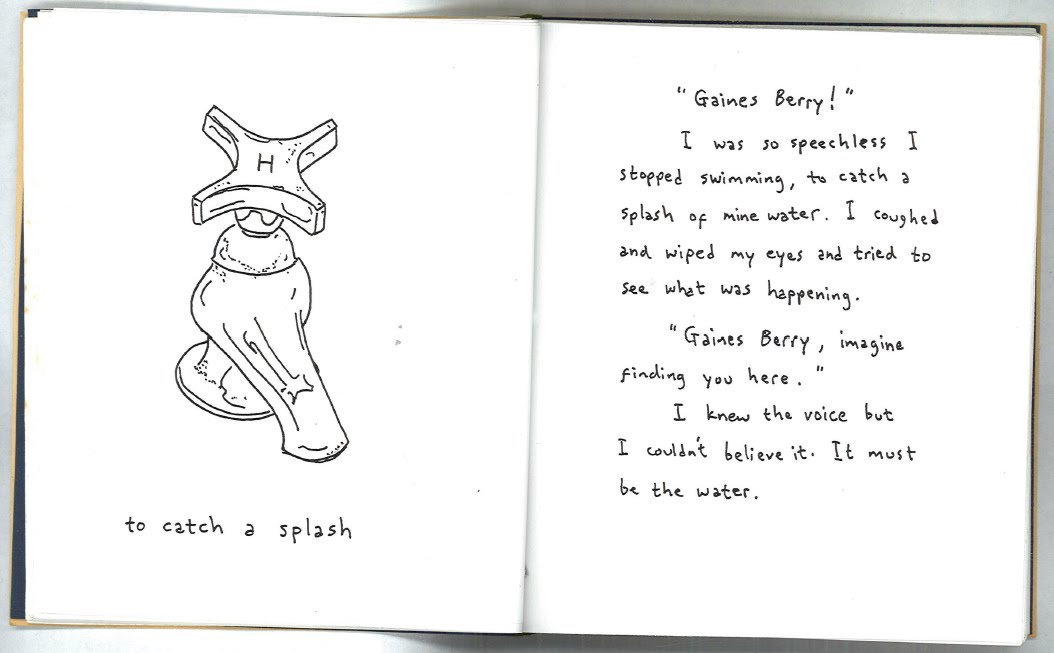 H
to catch a splash
"Gaines Berry!"
I was so speechless I
stopped swimming, to catch a
splash of mine water. I coughed
and wiped my eyes and tried to
see what was happening.
"Gaines Berry, imagine
finding you here."
I knew the voice but
I couldn't believe it. It must
be the water.